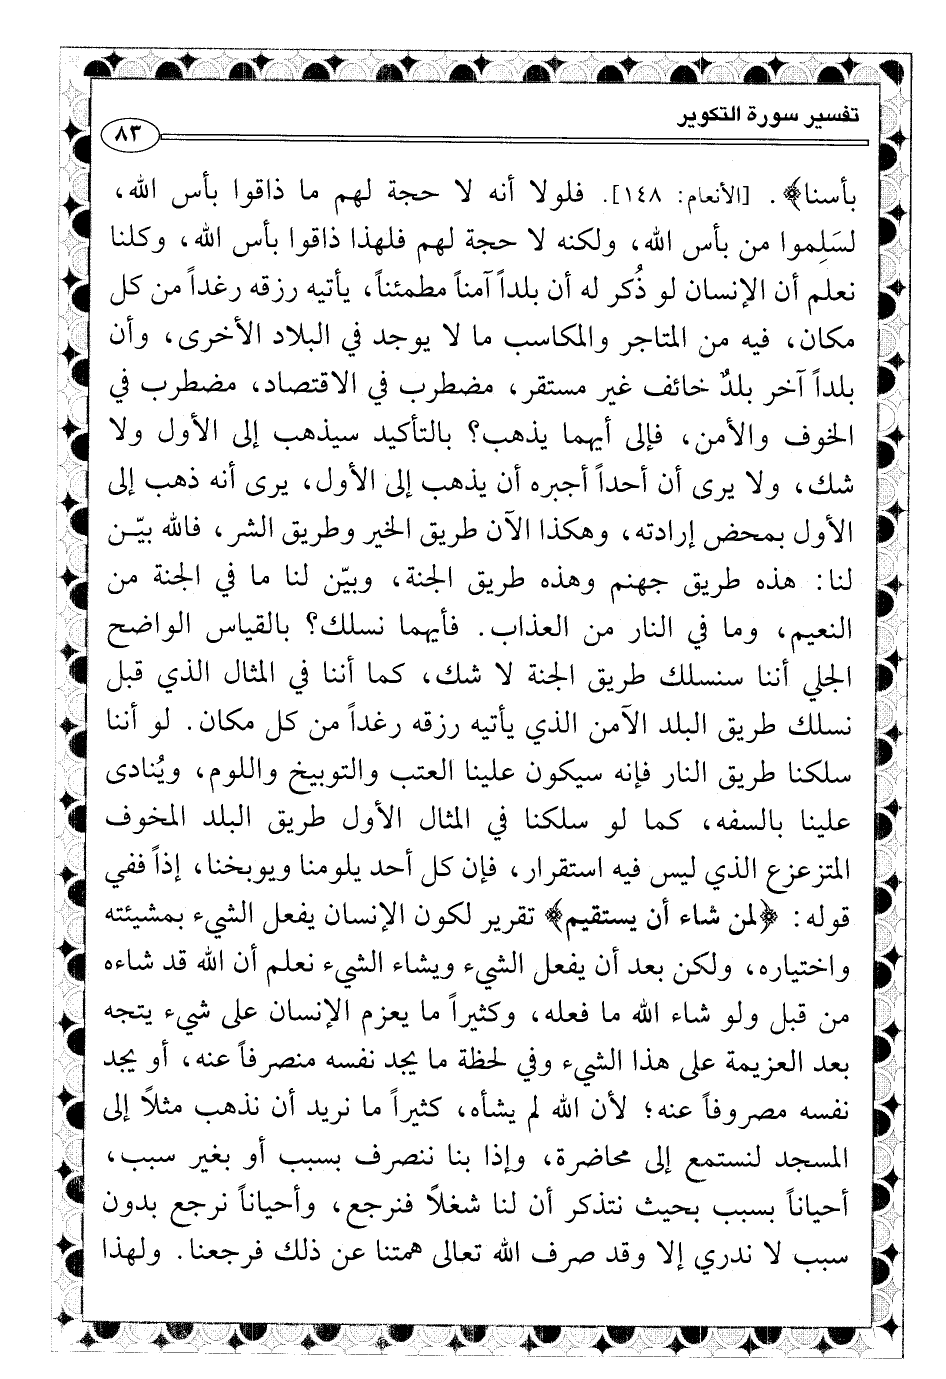 تفسير سورة التكوير
٨٣
بأسنا﴾. [الأنعام: ١٤٨]. فلولا أنه لا حجة لهم ما ذاقوا بأس الله،
لسَلِموا من بأس الله، ولكنه لا حجة لهم فلهذا ذاقوا بأس الله، وكلنا
نعلم أن الإنسان لو ذُكر له أن بلداً آمناً مطمئناً، يأتيه رزقه رغداً من كل
مكان، فيه من المتاجر والمكاسب ما لا يوجد في البلاد الأخرى، وأن
بلداً آخر بلدٌ خائف غير مستقر، مضطرب في الاقتصاد، مضطرب في
الخوف والأمن، فإلى أيهما يذهب؟ بالتأكيد سيذهب إلى الأول ولا
شك، ولا يرى أن أحداً أجبره أن يذهب إلى الأول، يرى أنه ذهب إلى
الأول بمحض إرادته، وهكذا الآن طريق الخير وطريق الشر، فالله بيّن
لنا: هذه طريق جهنم وهذه طريق الجنة، وبيّن لنا ما في الجنة من
النعيم، وما في النار من العذاب. فأيهما نسلك؟ بالقياس الواضح
الجلي أننا سنسلك طريق الجنة لا شك، كما أننا في المثال الذي قبل
نسلك طريق البلد الآمن الذي يأتيه رزقه رغداً من كل مكان. لو أننا
سلكنا طريق النار فإنه سيكون علينا العتب والتوبيخ واللوم، ويُنادى
علينا بالسفه، كما لو سلكنا في المثال الأول طريق البلد المخوف
المتزعزع الذي ليس فيه استقرار، فإن كل أحد يلومنا ويوبخنا، إذاً ففي
قوله: ﴿لمن شاء أن يستقيم﴾ تقرير لكون الإنسان يفعل الشيء بمشيئته
واختياره، ولكن بعد أن يفعل الشيء ويشاء الشيء نعلم أن الله قد شاءه
من قبل ولو شاء الله ما فعله، وكثيراً ما يعزم الإنسان على شيء يتجه
بعد العزيمة على هذا الشيء وفي لحظة ما يجد نفسه منصرفاً عنه، أو يجد
نفسه مصروفاً عنه؛ لأن الله لم يشأه، كثيراً ما نريد أن نذهب مثلاً إلى
المسجد لنستمع إلى محاضرة، وإذا بنا ننصرف بسبب أو بغير سبب،
أحياناً بسبب بحيث نتذكر أن لنا شغلاً فنرجع، وأحياناً نرجع بدون
سبب لا ندري إلا وقد صرف الله تعالى همتنا عن ذلك فرجعنا. ولهذا